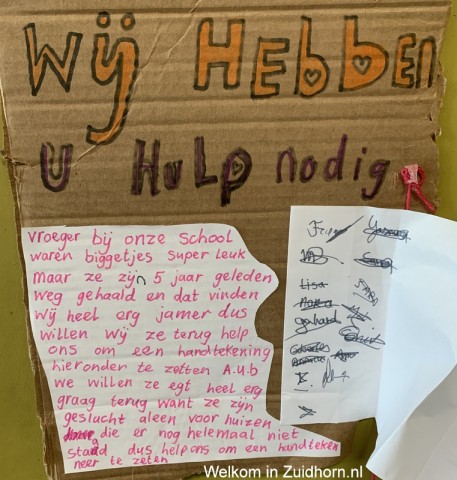 Wij Hebben
U Hulp nodig
vroeger bij onze school
waren biggetjes super leuk
maar ze zijn 5 jaar geleden
weg gehaald en dat vinden
wij heel erg jamer dus
willen wij ze terug help
ons om een handtekening
hieronder te zetten A.u.b
we willen ze egt heel erg
graag terug want ze zijn
geslucht aleen voor huizen
die er nog helemaal niet
staad dus help ons om een handteken
neer te zeten
Lisa
Welkom in Zuidhorn.nl